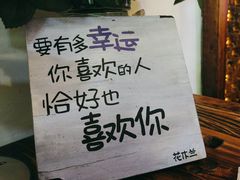 要有多幸运
你喜欢的人
恰好也
喜欢你
花木兰